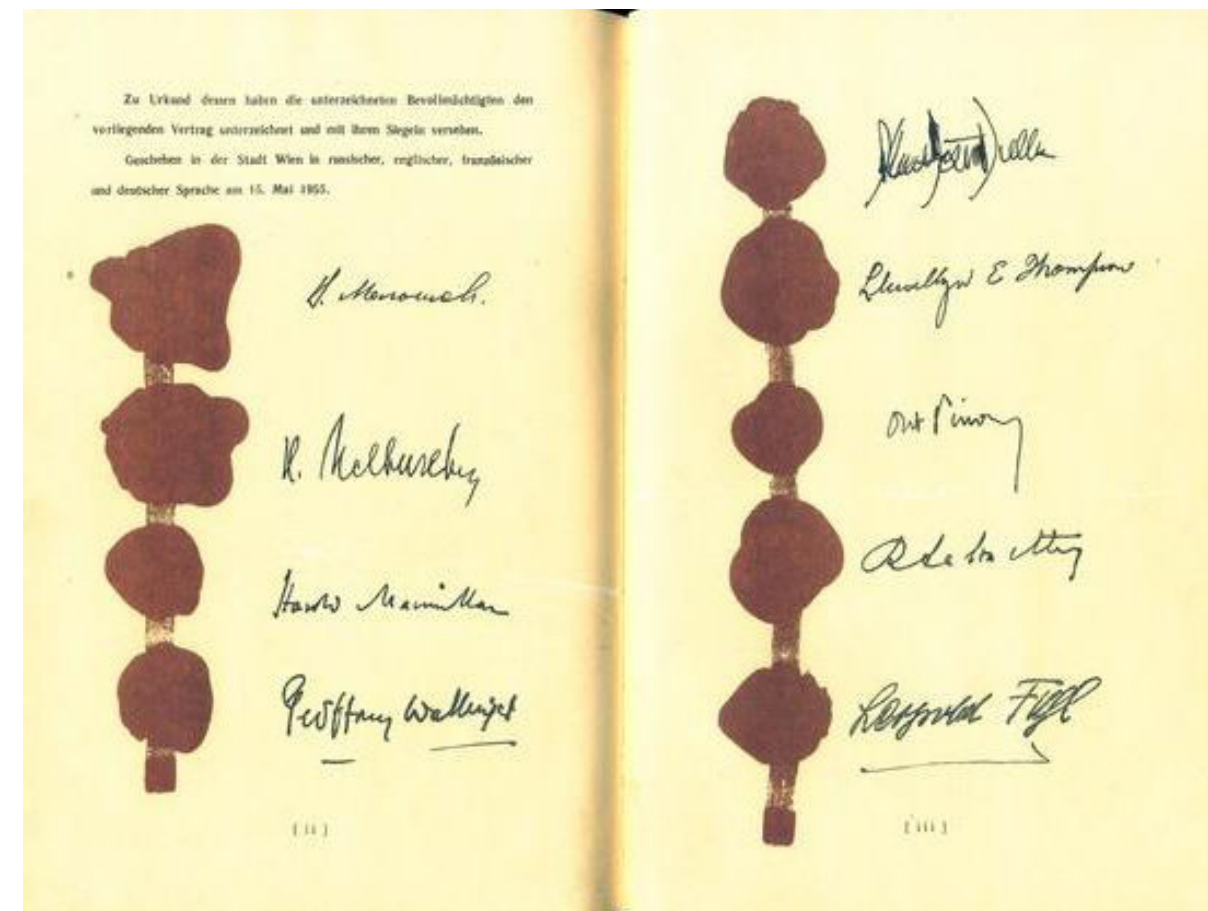 Zu Urkund dessen haben die unterzeichneten Bevollmächtigten den
vorliegenden Vertrag unterzeichnet und mit ihren Siegeln versehen.
Geschehen in der Stadt Wien in russischer, englischer, französischer
und deutscher Sprache am 15. Mai 1955.
Harold Macmillan
Geoffrey Wallinger
[ ii ]
Llewellyn E Thompson
Leopold Figl
[ iii ]